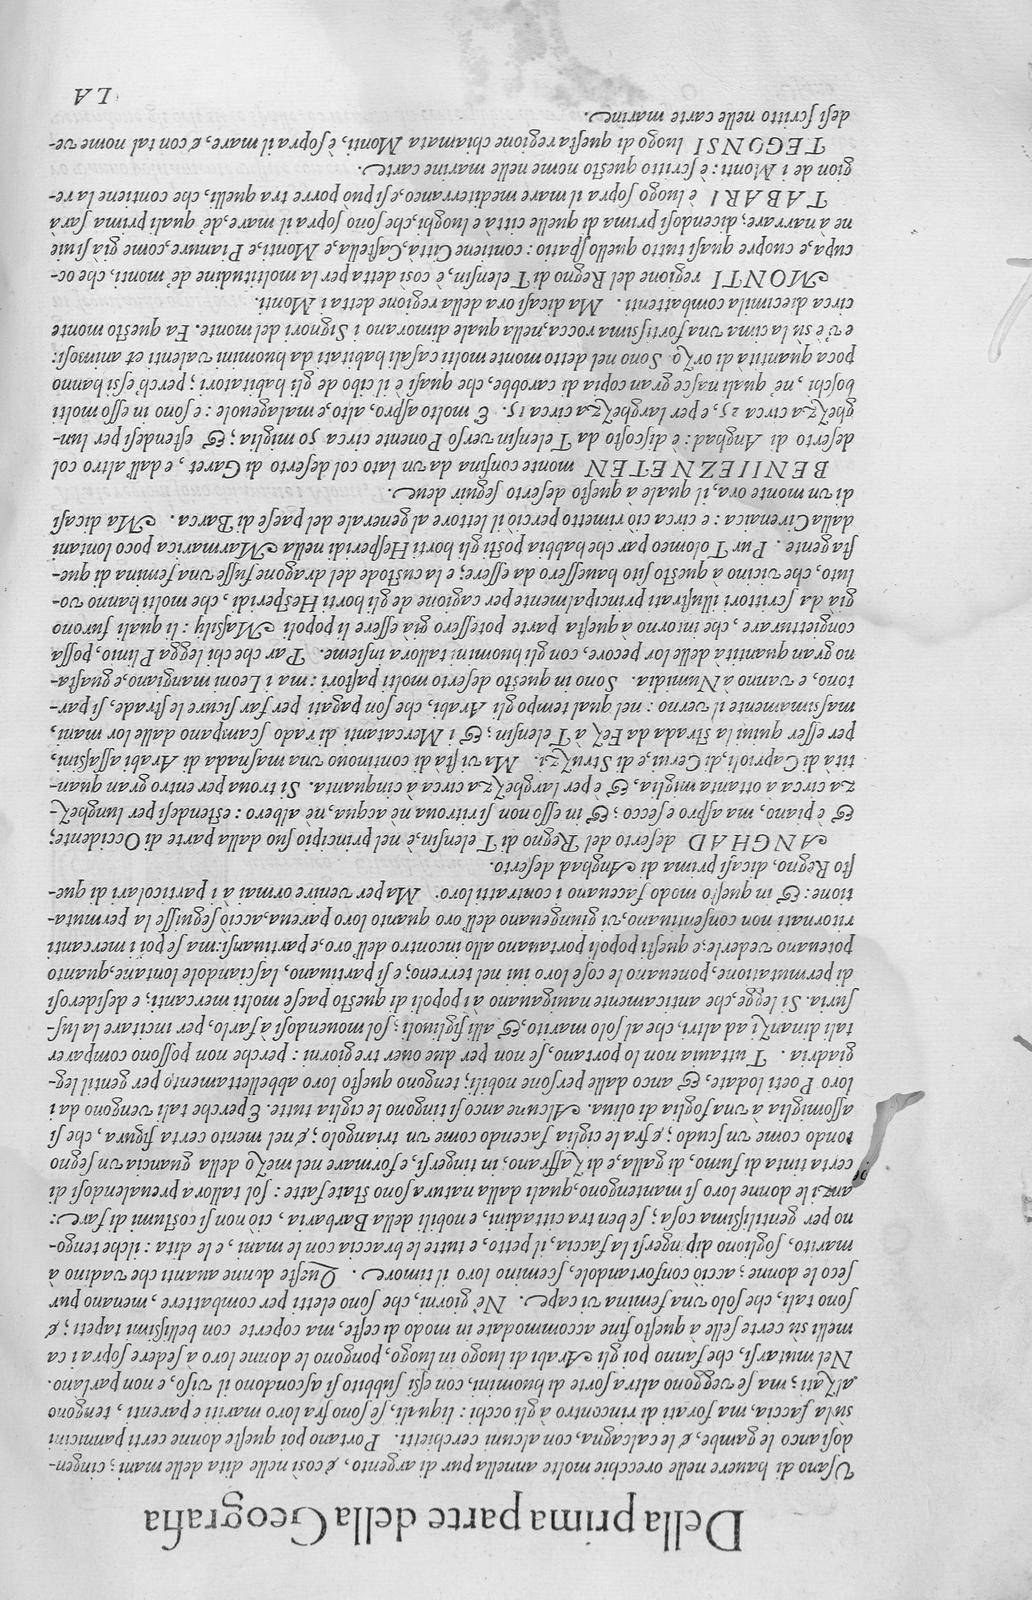 Della prima parte della Geografia
Usano di hauere nelle orecchie molte annella pur di argento, & così nelle dita delle mani; cingen-
dosi anco le gambe, & le calcagna, con alcuni cerchietti. Portano poi queste donne certi pannicini
sù la faccia, ma forati di rincontro à gli occhi: li quali, se sono fra loro mariti e parenti, tengono
alzati; ma se veggono altra sorte di huomini, con eßi subbito si ascondono il viso, e non parlano.
Nel mutarsi, che fanno poi gli Arabi di luogo in luogo, pongono le donne loro à sedere sopra i ca
melli su certe selle à questo fine accommodate in modo di ceste, ma coperte con bellißimi tapeti; &
sono tali, che solo una femina vi cape. Nè giorni, che sono eletti per combattere, menano pur
seco le donne; acciò confortandole, scemino loro il timore. Queste donne auanti che vadino à
marito, sogliono dipingersi la faccia, il petto, e tutte le braccia con le mani, e le dita: ilche tengo-
no per gentilißima cosa; se ben tra cittadini, e nobili della Barbaria, ciò non si costumi di fare:
anzi le donne loro si mantengono, quali dalla natura sono state fatte: sol tallora preualendosi di
certa tinta di fumo, di galla, e, di Zaffrano, in tingersi, e formare nel mezo della guancia un segno
tondo come un scudo; & fra le ciglia facendo come un triangolo; & nel mento certa figura, che si
assomiglia à una foglia di oliua. Alcune anco si tingono le ciglia tutte. E perche tali vengono da i
loro Poeti lodate, & anco dalle persone nobili; tengono questo loro abbellettamento per gentil leg-
giadria. Tuttauia non lo portano, se non per due ouer tre giorni: perche non possono comparer
tali dinanzi ad altri, che al solo marito, & alli figliuoli; sol mouendosi à farlo, per incitare la lus-
suria. Si legge, che anticamente nauigauano à i popoli di questo paese molti mercanti; e desiderosi
di permutatione, poneuano le cose loro iui nel terreno; e si partiuano, lasciandole lontane, quanto
poteuano vederle, e questi popoli portauano allo incontro dell'oro, e partiuansi: ma se poi i mercanti
ritornati non consentiuano, vi giungeuano dell'oro quanto loro pareua, acciò seguisse la permuta-
tione: & in questo modo faceuano i contratti loro. Ma per venire ormai à i particolari di que-
sto Regno, dicasi prima di Anghad deserto.
ANGHAD deserto del Regno di Telensin, è nel principio suo dalla parte di Occidente;
& è piano, ma aspro e secco; & in esso non si ritroua nè acqua, nè albero: estendesi per lunghez-
za circa à ottanta miglia, & è per larghezza circa à cinquanta. Si troua per entro gran quan-
tità di Caprioli, di Cerui, e di Struzzi. Ma vi stà di continouo una masnada di Arabi assasini,
per esser quiui la strada da Fez à Telensin; & i Mercatanti di rado scampano dalle lor mani,
maßimamente il verno: nel qual tempo gli Arabi, che son pagati per far sicure le strade, si par-
tono, e vanno à Numidia. Sono in questo deserto molti pastori: ma i Leoni mangiano, e guasta-
no gran quantità delle lor pecore, con gli huomini tallora insieme. Par che chi legga Plinio, possa
congietturare, che intorno à questa parte potessero già essere li popoli Maßilÿ: li quali furono
già da scrittori illustrati principalmente per cagione de gli horti Hesperidi, che molti hanno vo-
luto, che vicino à questo sito hauessero da essere; e la custode del dragone fusse una femina di que-
sta gente. Pur Tolomeo par che habbia posti gli horti Hesperidi nella Marmarica poco lontani
dalla Cirenaica: e circa ciò rimetto perciò il lettore al generale del paese di Barca. Ma dicasi
di un monte ora, il quale a questo deserto seguir deue.
BENIIEZNETEN monte confina da un lato col deserto di Garet, e dall'altro col
deserto di Anghad: è discosto da Telensin verso Ponente circa 50 miglia; & estendesi per lun-
ghezza circa 25, e per larghezza circa 15. E molto aspro, alto, e, malageuole: e sono in esso molti
boschi, nè quali nasce gran copia di carobbe, che quasi è il cibo de gli habitatori; perch'eßi hanno
poca quantità di orzo. Sono nel detto monte molti casali habitati da huomini valenti et animosi:
e v'è sù la cima una fortißima rocca, nella quale dimorano i Signori del monte. Fa questo monte
circa diecimila combattenti. Ma dicasi ora della regione detta i Monti.
MONTI regione del Regno di Telensin, è così detta per la moltitudine de' monti, che oc-
cupa, e cuopre quasi tutto quello spatio: contiene Città, Castella, e Monti, e Pianure, come già si uie
ne à narrare; dicendosi prima di quelle città e luoghi, che sono sopra il mare, de' quali prima sarà
TABARI è luogo sopra il mare mediterraneo, e si può porre tra quelli, che contiene la re-
gion de i Monti: è scritto questo nome nelle marine carte.
TEGONSI luogo di questa regione chiamata Monti, è sopra il mare, & con tal nome ve-
desi scritto nelle carte marine.
LA